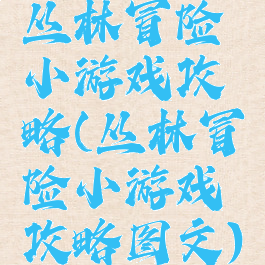 丛林冒险
小游戏攻
略(丛林冒
险小游戏
攻略图文)